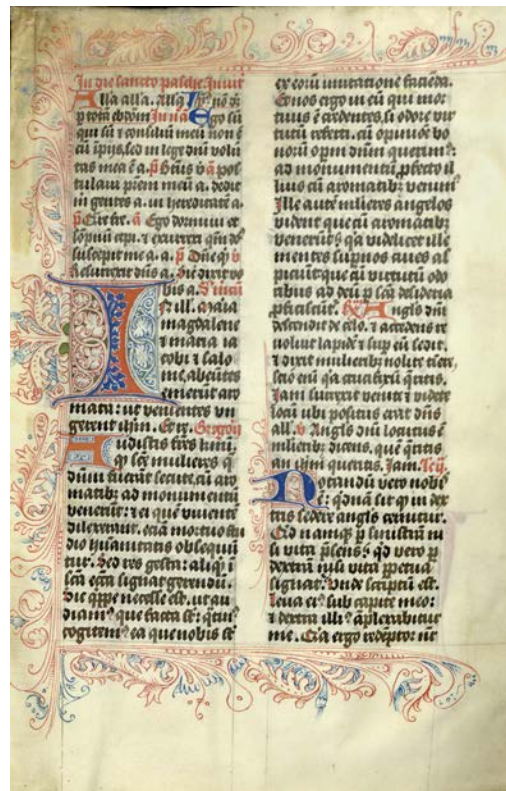 In die sancto pasche. Inuit
Alla alla. All
p totā Ego sū
qui sū ⁊ consiliū meū non ē
cū ipijs, sed in lege dnī volū
tas mea ē a. pos
tulaui prēm meū a. dedit
in gentes a. in hereditatē a.
Ego dormiui et
⁊ exurrexi qm̄ dn̄s
suscepit me a. a.
Resurrexit dn̄s a. Sic dixit vo
bis a.
ill. Maria
magdalene
⁊ maria ia
cobi ⁊ salo
me, abeūtes
emerūt aro
mata: ut venientes vn
gerent ihm. Et
Audistis frēs kmī.
q sc̄e mulieres q
dn̄m fuerāt secute, cū aro
matibz ad monumentū
venerūt: ⁊ ei quē viuente
dilexerant. eciā mortuo stu
dio hūanitatis obsequū
tur. Sed res gesta: aliqd ī
sc̄a ecc̄a signat gerendū.
Sic qppe necesse est. ut au
diam᷒ que facta st̄: qtin᷒
cogitem᷒ ea que nobis st̄
ex eorū imitatione faciēda.
Et nos ergo in eū qui mor
tuus ē credentes, si odore vir
tutū referti. cū opiniōe bo
norū opm̄ dnm̄ querim᷒:
ad monumentū pfecto il
lius cū aromatibz venim᷒
Ille autē mlieres angelos
vident que cū aromatibz
venerūt: qa videlicet ille
mentes supnos ciues as
piciūt que cū virtutū odo
ribus ad deū p sc̄a desideria
pficiscūt. Angls dn̄i
descendit de celo. ⁊ accedens re
uoluit lapidē ⁊ sup eū sedit.
⁊ dixit mulieribz nolite timē,
scio enī qa crucifixū qritis.
Iam surrexit venite ⁊ videte
locū ubi positus erat dn̄s
all. v Angls dn̄i locutus ē
mlieribz dicens. quē qritis
an ihm queritis. Iam.
Notandū vero nobis
ē: qdnā sit q in dex
tris sedere angls cernitur.
Qid namqz p sinistrā ni
si vita psens: qd vero p
dexterā nisi vita ppetua
signat. Vnde scriptū est.
leua ei᷒ sub capite meo:
⁊ dextera illi᷒ āplexabitur
me. Qia ergo redēptor nr̄